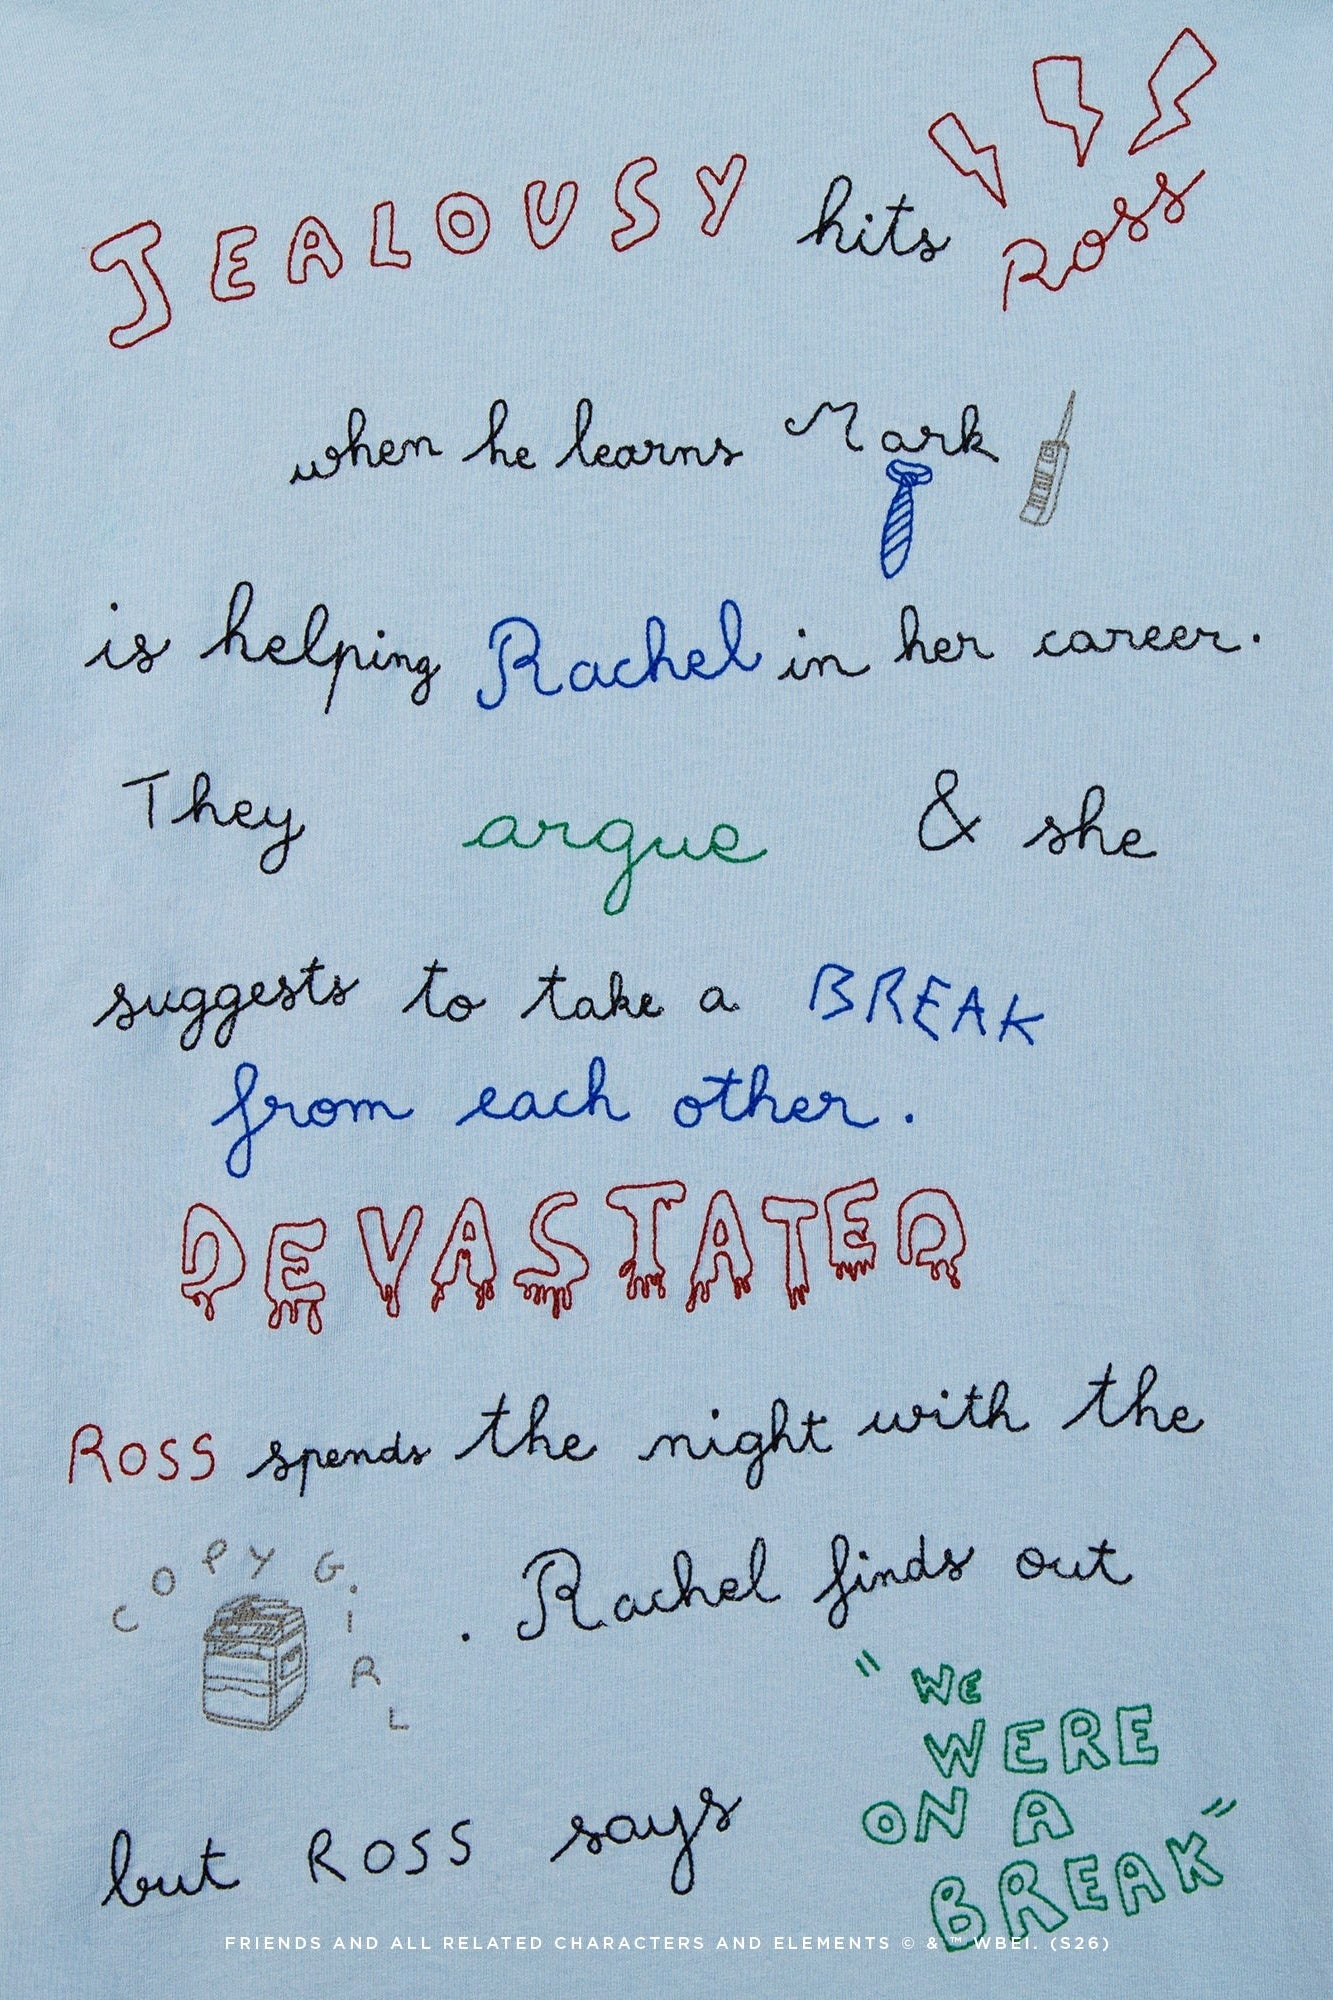 JEALOUSY hits Ross
when he learns Mark
is helping Rachel in her career.
They argue & she
suggests to take a BREAK
from each other.
DEVASTATED
ROSS spends the night with the
COPY GIRL . Rachel finds out
but ROSS says "WE
WERE
ON A
BREAK"
FRIENDS AND ALL RELATED CHARACTERS AND ELEMENTS © & ™ WBEI. (S26)